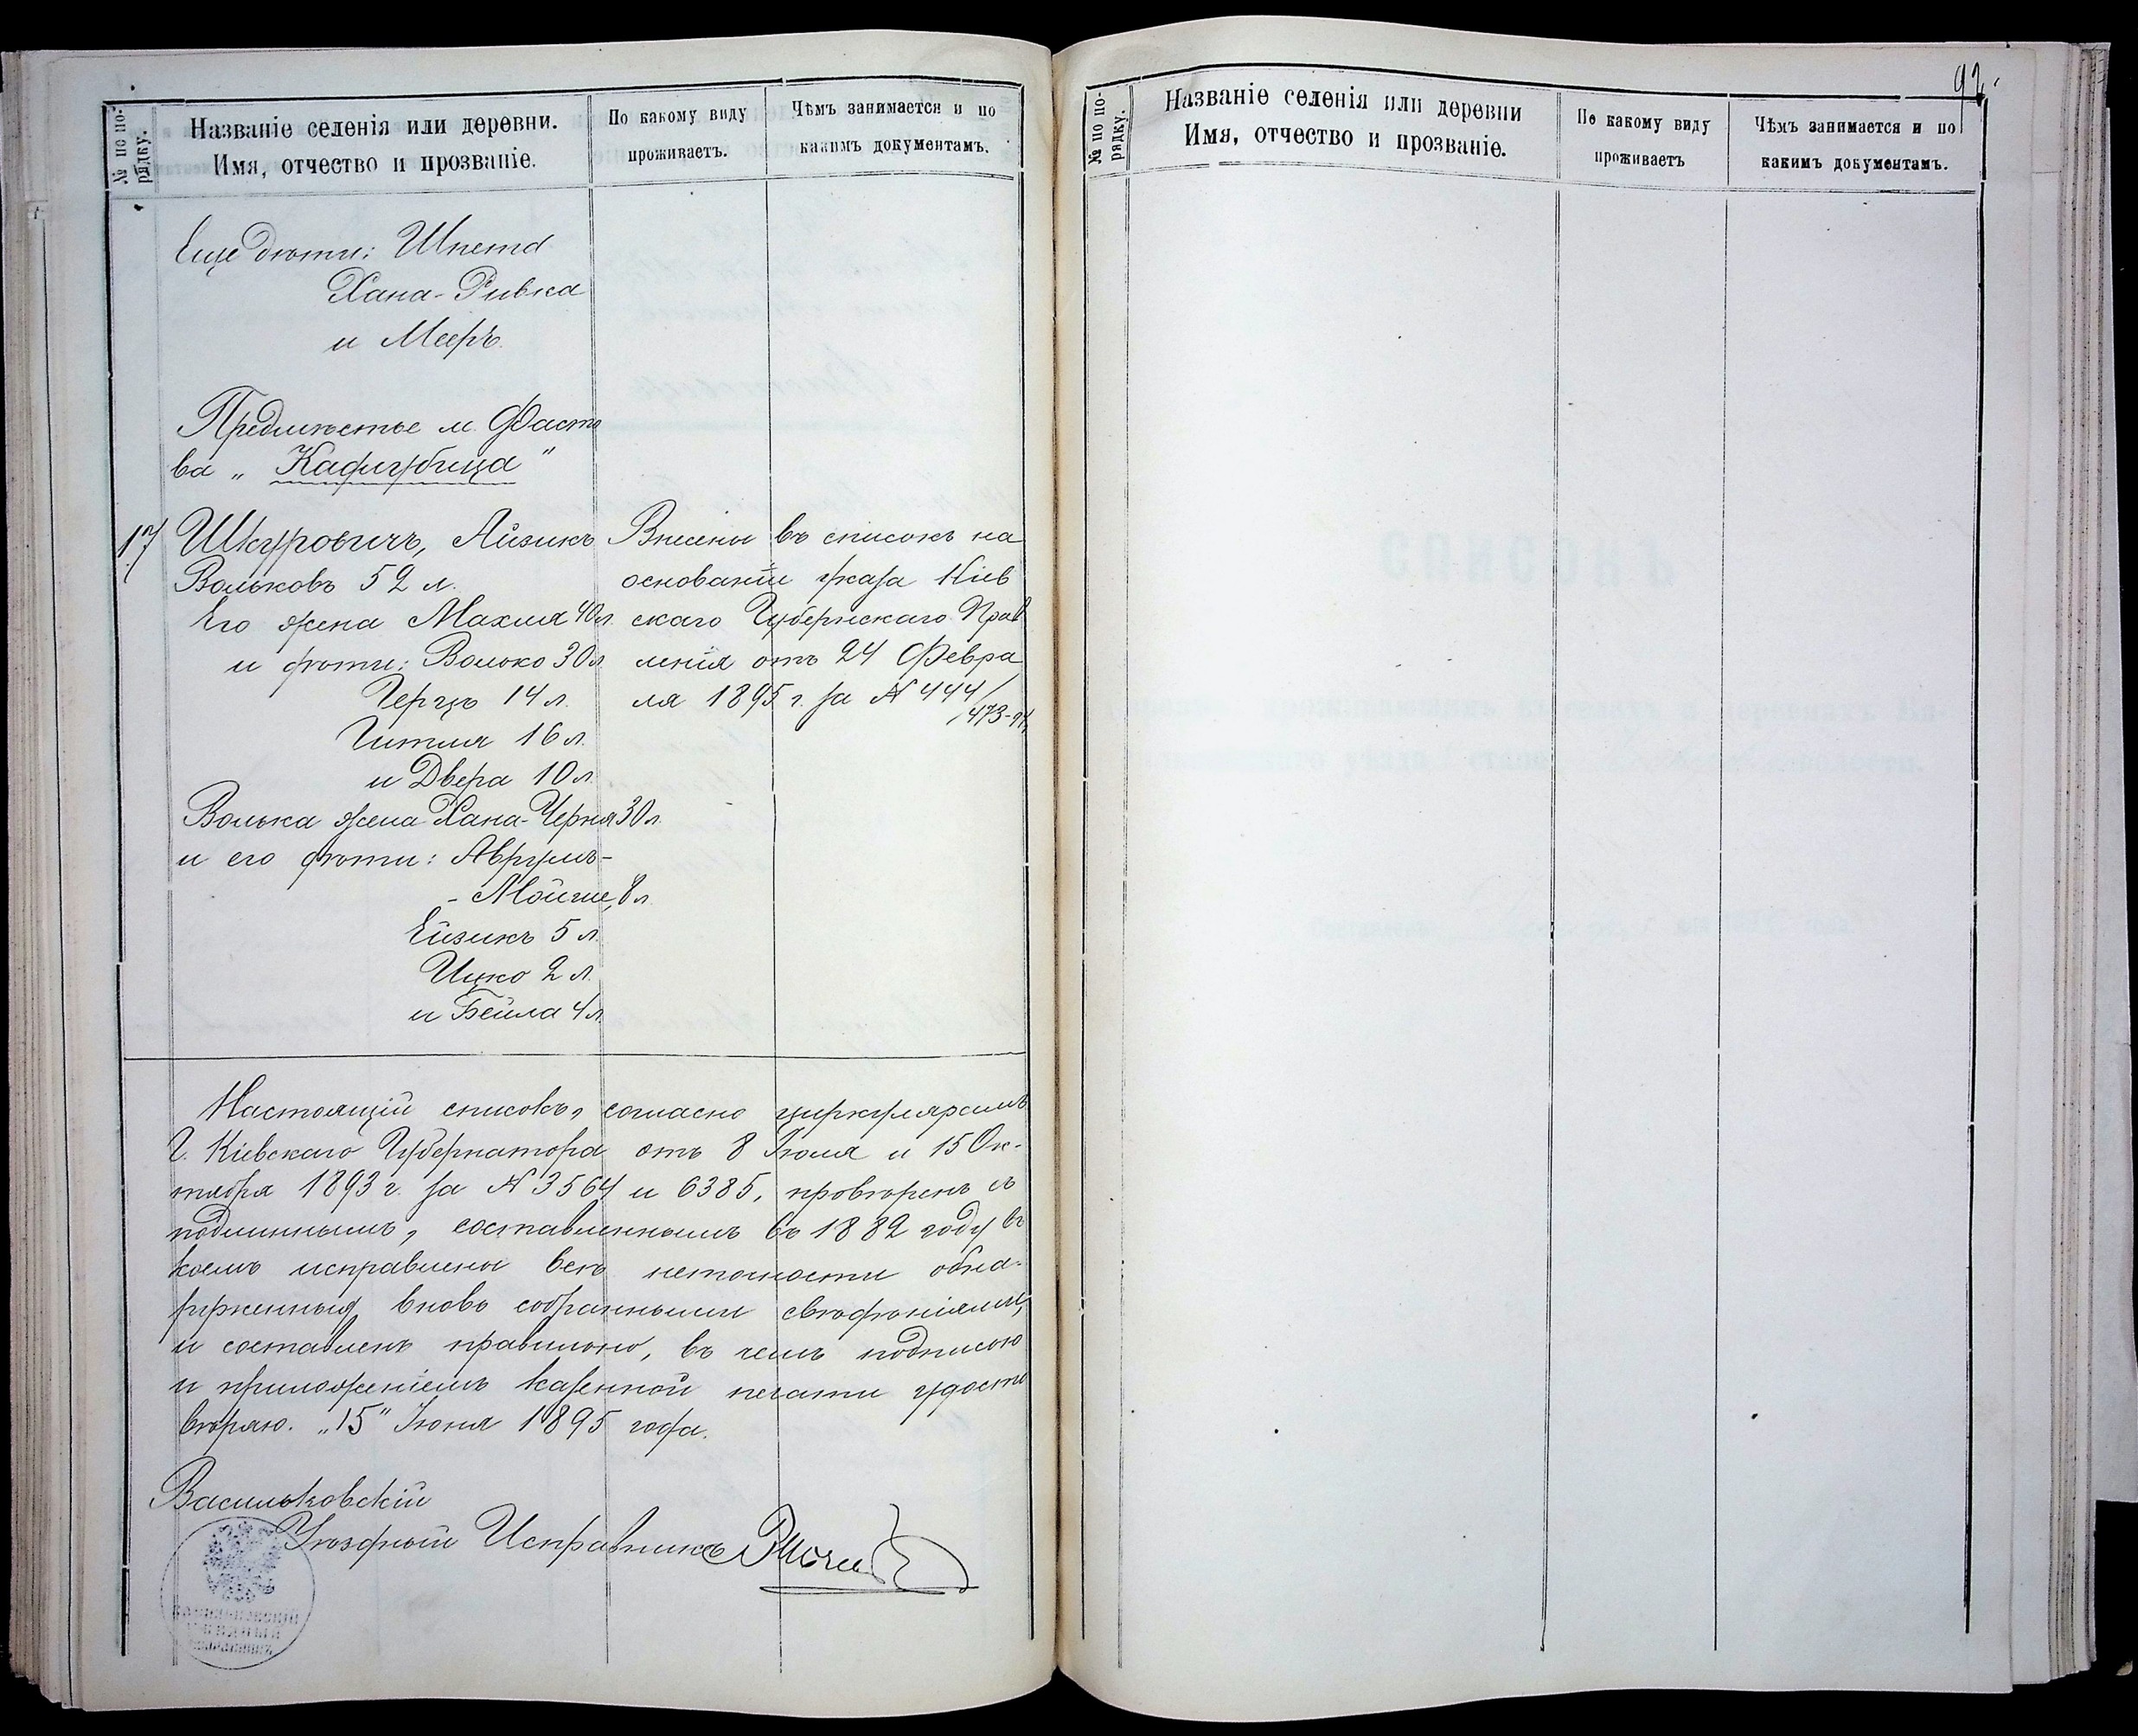 № по по-
рядку.
Названіе селенія или деревни.
Имя, отчество и прозваніе.
По какому виду
проживаетъ.
Чѣмъ занимается и по
какимъ документамъ.
Еще дѣти: Шпета
Хана-Ривка
и Мееръ.
Предмѣстье м. Фасто
ва „Кадигробица"
17 Шкуровичъ, Айзикъ
Вольковъ 52 л.
Его жена Махля 40 л.
и дѣти: Волько 30 л.
Герцъ 14 л.
Гитля 16 л.
и Двера 10 л.
Волька жена Хана-Черня 30 л.
и его дѣти: Аврумъ-
-Мойше, 8 л.
Ейзикъ 5 л.
Ицко 2 л.
и Бейла 4 л.
Внесены въ списокъ на
основаніи указа Кіев
скаго Губернскаго Прав
ленія отъ 24 Февра
ля 1895 г. за № 444/
473-94
Настоящій списокъ, согласно циркулярамъ
Г. Кіевскаго Губернатора отъ 8 Іюля и 15 Ок-
тября 1893 г. за № 3564 и 6385, провѣренъ съ
подлиннымъ, составленнымъ въ 1882 году въ
коемъ исправлены всѣ неточности обна-
руженныя вновь собранными свѣдѣніями,
и составленъ правильно, въ чемъ подписью
и приложеніемъ казенной печати удосто
вѣряю. „15" Іюня 1895 года.
Васильковскій
Уѣздный Исправникъ
92.
№ по по-
рядку.
Названіе селенія или деревни
Имя, отчество и прозваніе.
По какому виду
проживаетъ
Чѣмъ занимается и по
какимъ документамъ.